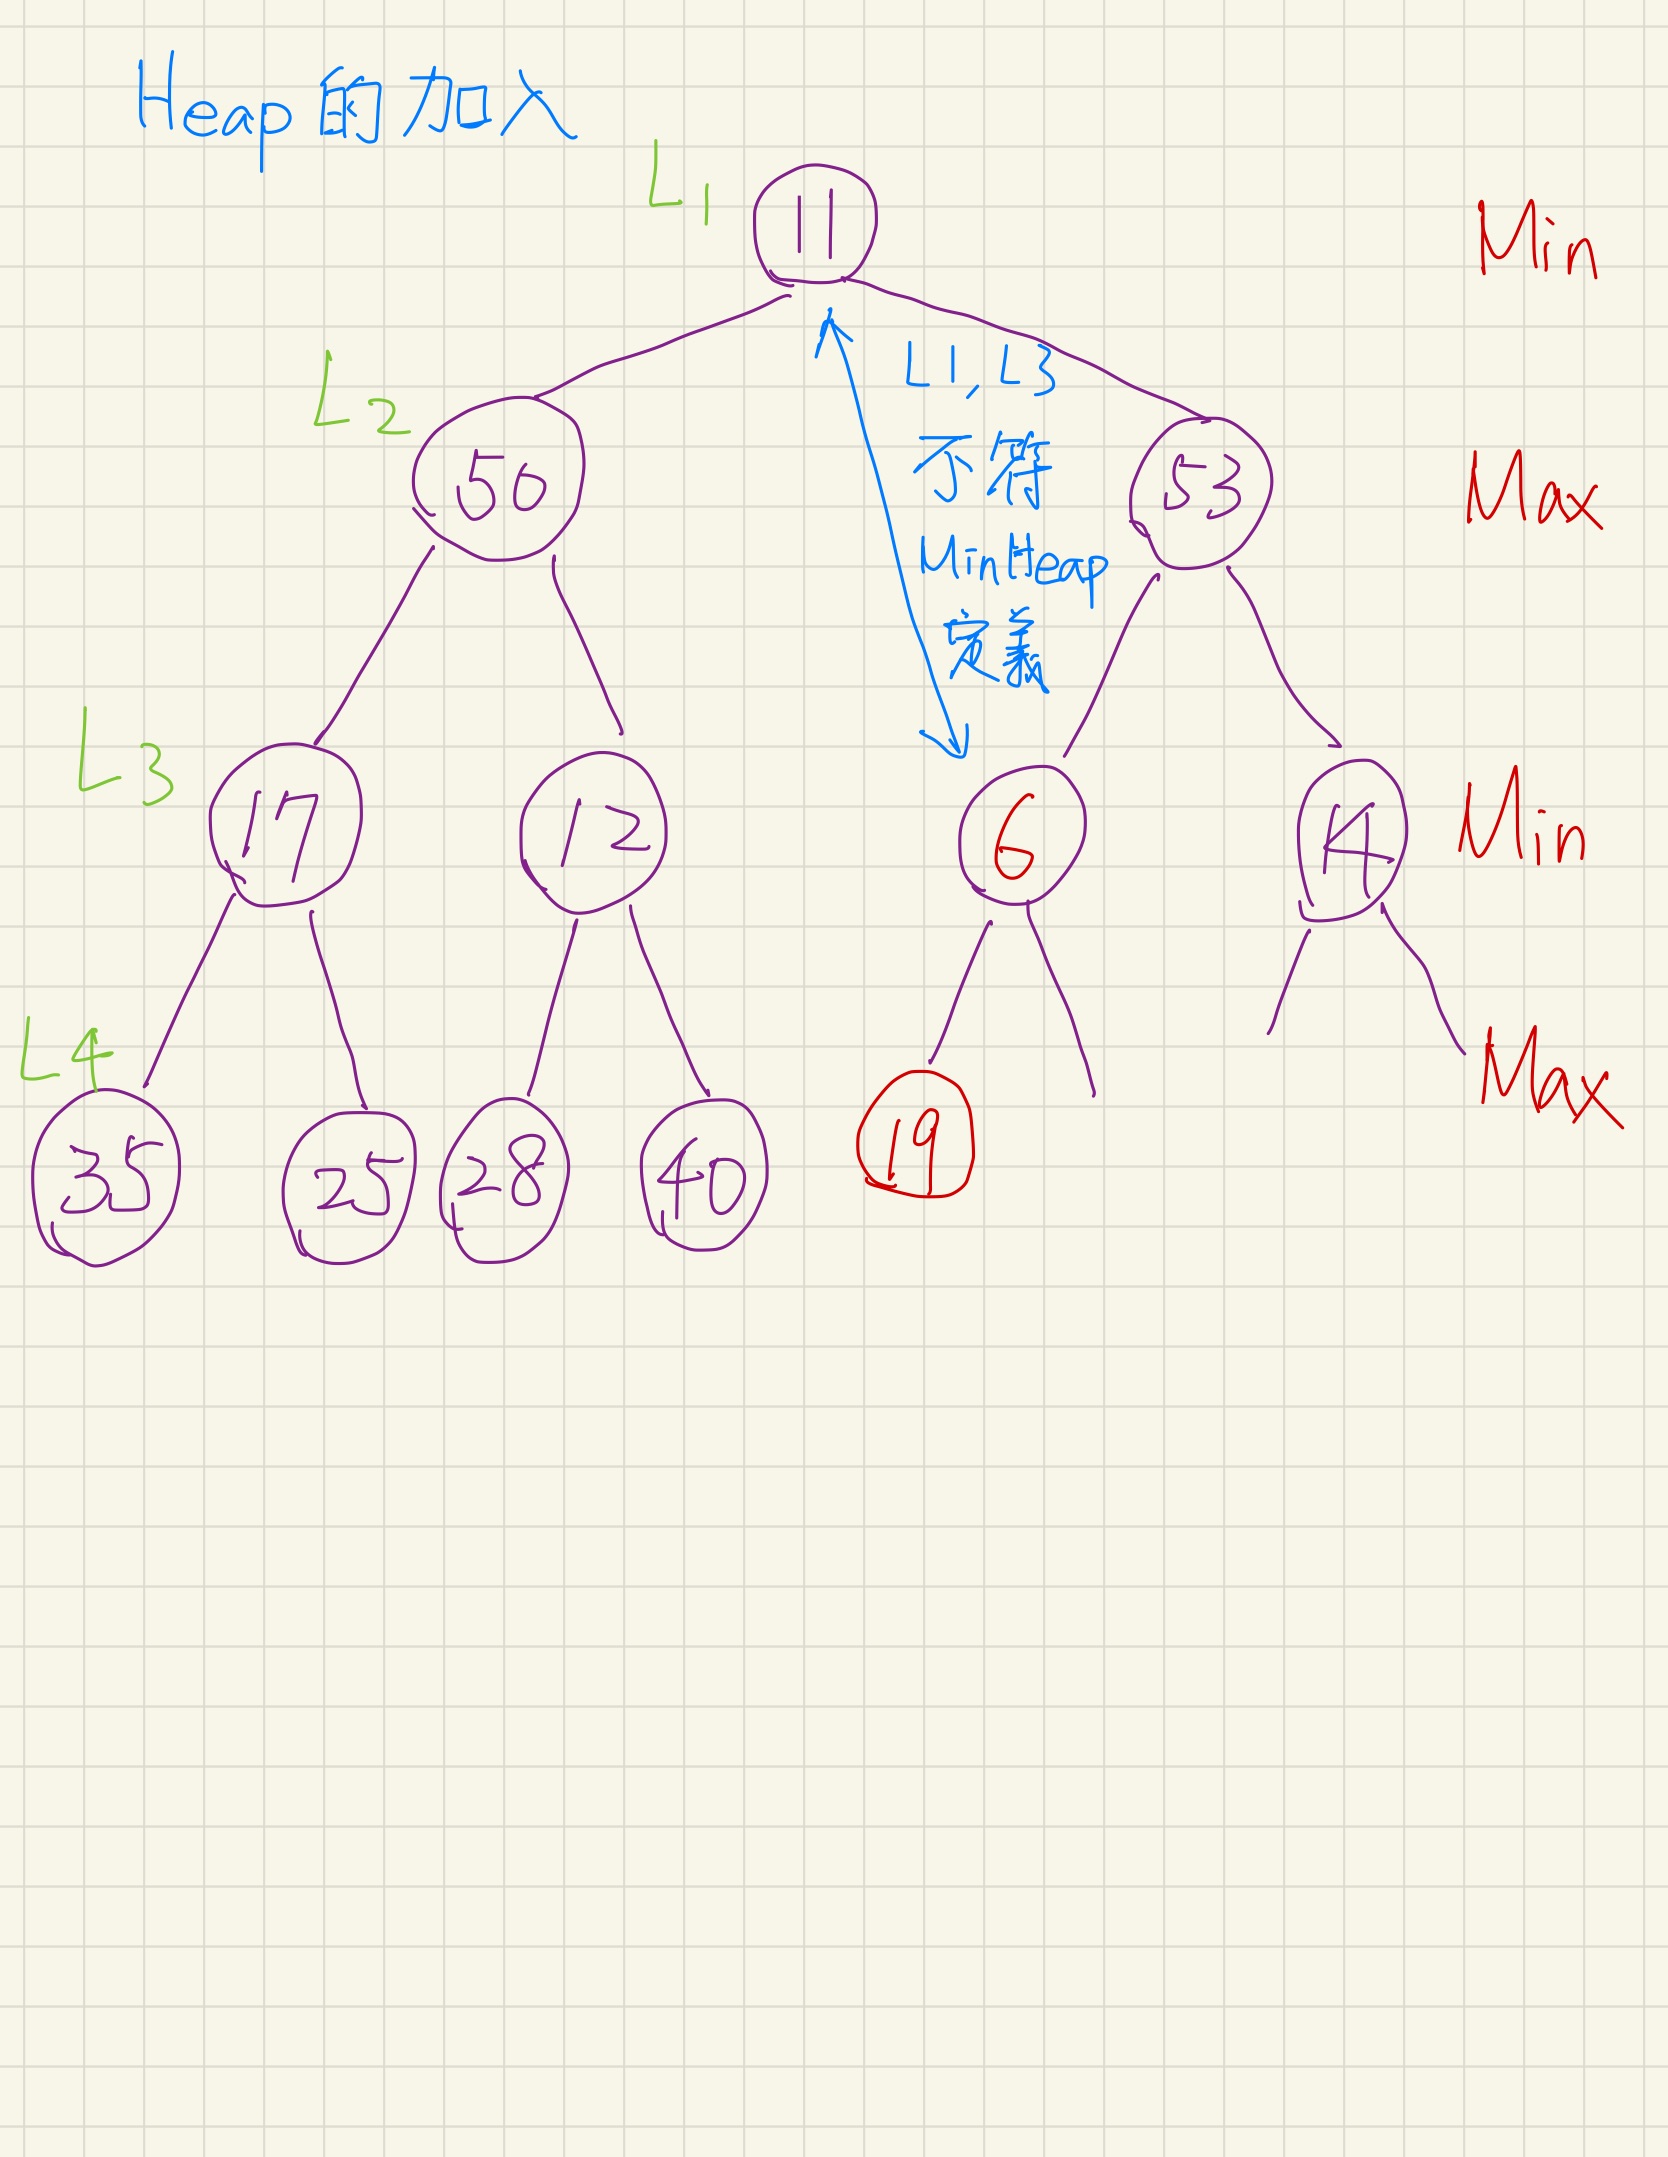 Heap的加入
L1
11
Min
L1, L3
不符
MinHeap
定義
L2
50
53
Max
L3
17
12
6
14
Min
L4
35
25
28
40
19
Max